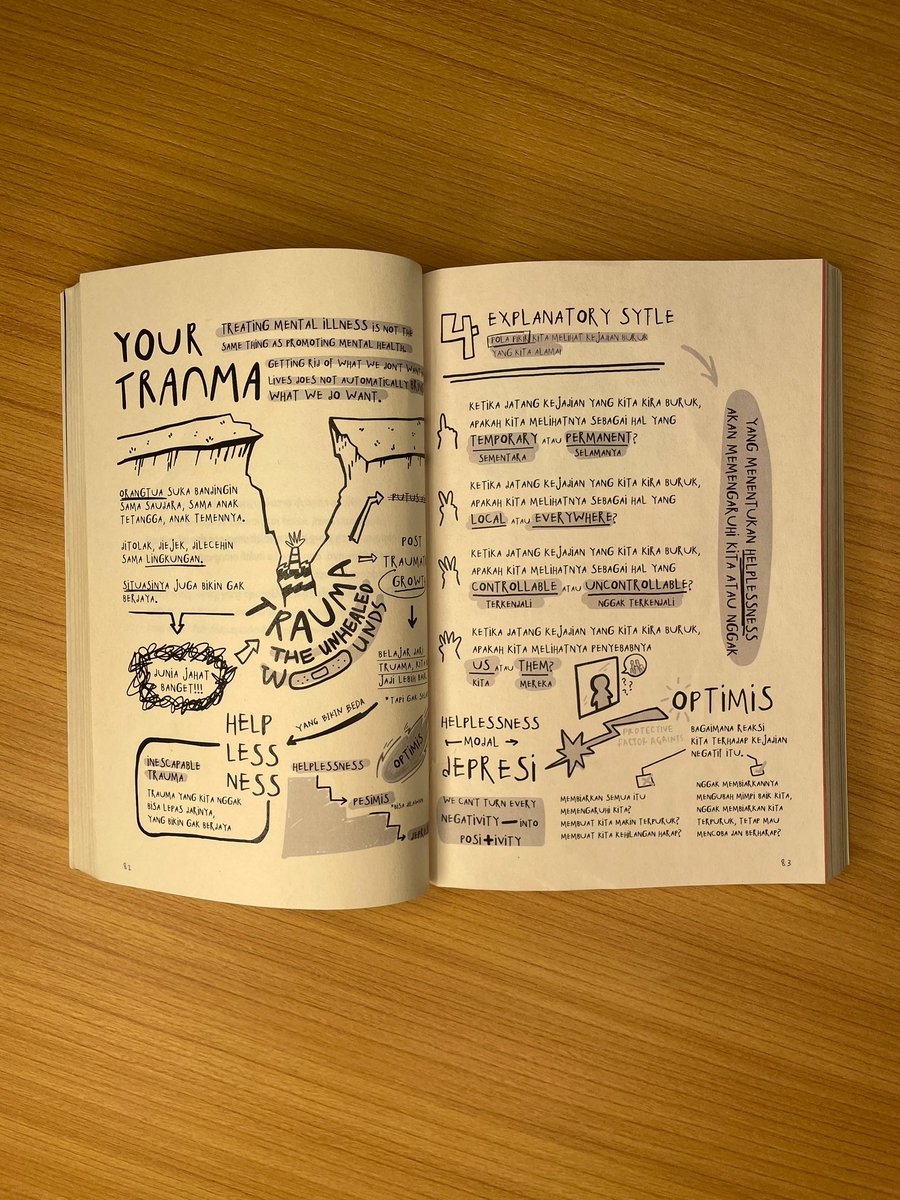 YOUR
TRANMA
TREATING MENTAL ILLNESS IS NOT THE
SAME THING AS PROMOTING MENTAL HEALTH.
GETTING RID OF WHAT WE DON'T WANT
LIVES DOES NOT AUTOMATICALLY
WHAT WE DO WANT.
ORANGTUA SUKA BANDINGIN
SAMA SAUDARA, SAMA ANAK
TETANGGA, ANAK TEMENNYA.
DITOLAK, DIEJEK, DILECEHIN
SAMA LINGKUNGAN.
SITUASINYA JUGA BIKIN GAK
BERDAYA.
DUNIA JAHAT
BANGET!!!
TRAUMA
THE UNHEALED
POST
GROWTH
BELAJAR DARI
TRUAMA, KITA
JADI LEBIH
*TAPI GAK
YANG BIKIN BEDA
HELP
LESS
NESS
INESCAPABLE
TRAUMA
TRAUMA YANG KITA NGGAK
BISA LEPAS DARINYA,
YANG BIKIN GAK BERDAYA
HELPLESSNESS
OPTIMIS
PESIMIS
*BISA
82
4 EXPLANATORY SYTLE
POLA PIKIR KITA MELIHAT KEJADIAN BURUK
YANG KITA ALAMAI
KETIKA DATANG KEJADIAN YANG KITA KIRA BURUK,
APAKAH KITA MELIHATNYA SEBAGAI HAL YANG
TEMPORARY ATAU PERMANENT?
SEMENTARA SELAMANYA
KETIKA DATANG KEJADIAN YANG KITA KIRA BURUK,
APAKAH KITA MELIHATNYA SEBAGAI HAL YANG
LOCAL ATAU EVERYWHERE?
KETIKA DATANG KEJADIAN YANG KITA KIRA BURUK,
APAKAH KITA MELIHATNYA SEBAGAI HAL YANG
CONTROLLABLE ATAU UNCONTROLLABLE?
TERKENDALI NGGAK TERKENDALI
KETIKA DATANG KEJADIAN YANG KITA KIRA BURUK,
APAKAH KITA MELIHATNYA PENYEBABNYA
US ATAU THEM?
KITA MEREKA
YANG MENENTUKAN HELPLESSNESS
AKAN MEMENGARUHI KITA ATAU NGGAK
??
?
HELPLESSNESS
MODAL
DEPRESI
OPTIMIS
PROTECTIVE
FACTOR AGAINTS
BAGAIMANA REAKSI
KITA TERHADAP KEJADIAN
NEGATIF ITU.
WE CAN'T TURN EVERY
NEGATIVITY — INTO
POSI+IVITY
MEMBIARKAN SEMUA ITU
MEMENGARUHI KITA?
MEMBUAT KITA MAKIN TERPURUK?
MEMBUAT KITA KEHILANGAN HARAP?
NGGAK MEMBIARKANNYA
MENGUBAH MIMPI BAIK KITA,
NGGAK MEMBIARKAN KITA
TERPURUK, TETAP MAU
MENCOBA DAN BERHARAP?
83